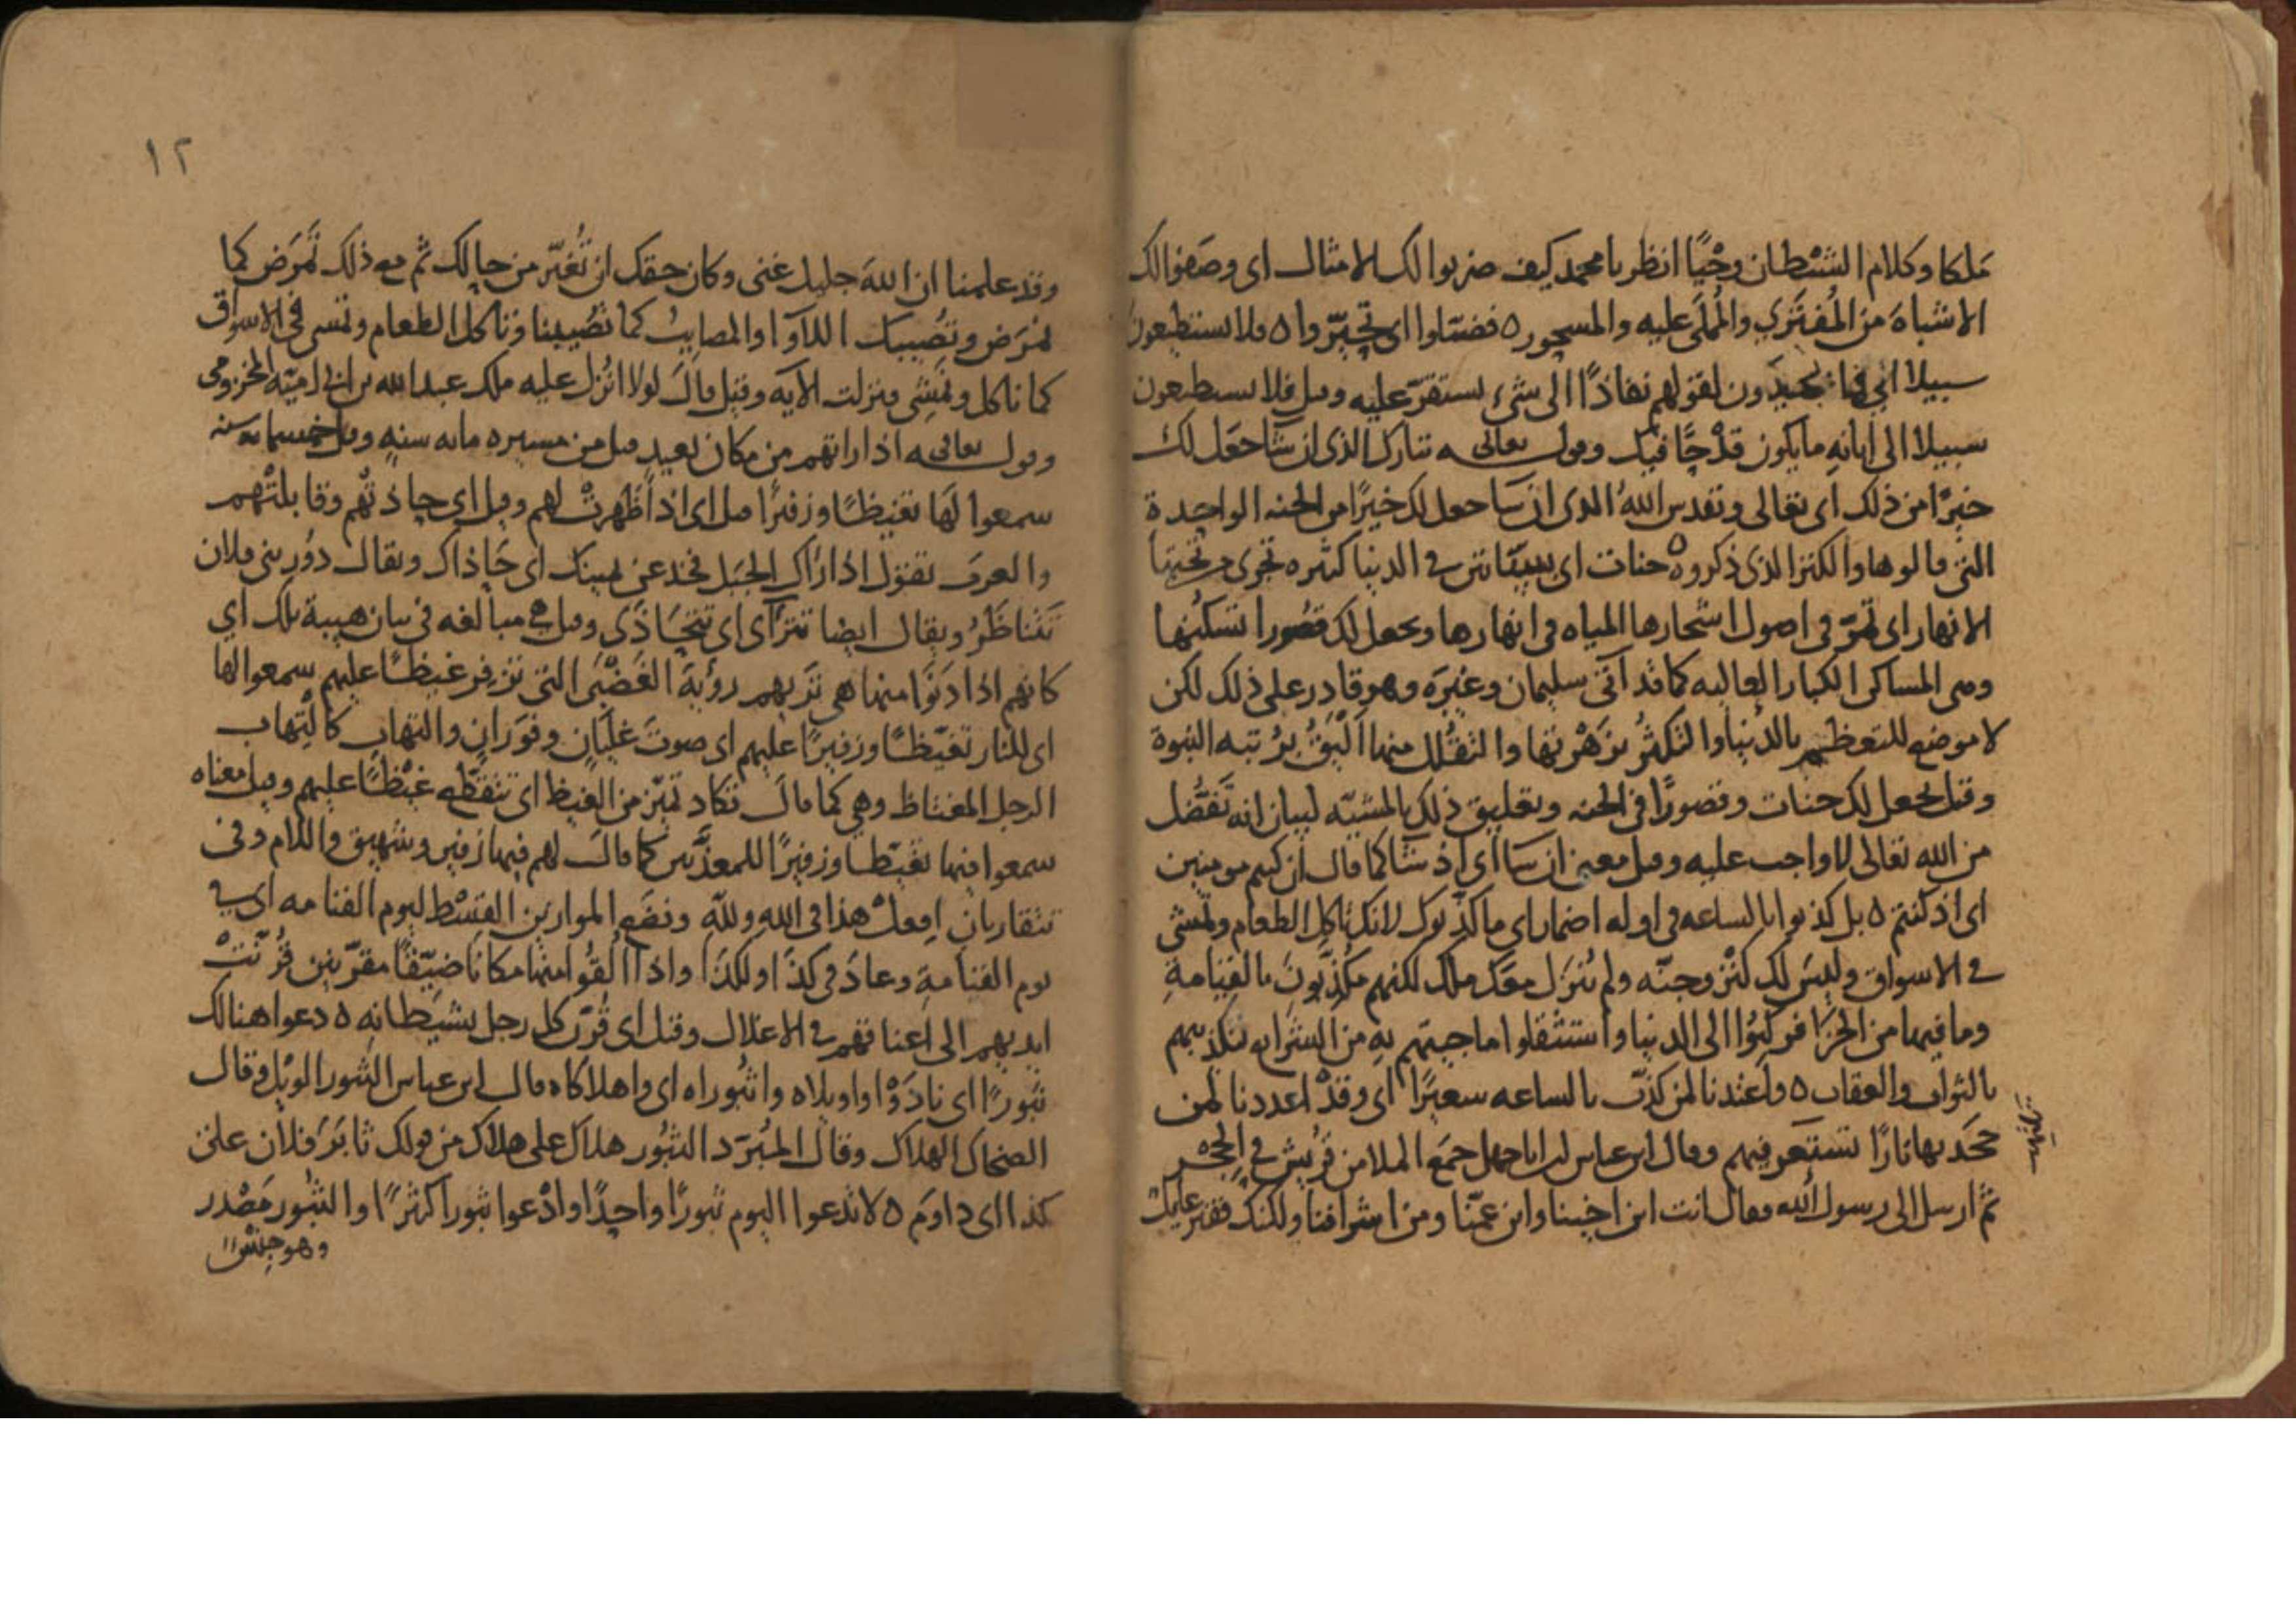 ملكا وكلام الشيطان وحيًا انظر يا محمد كيف ضربوا لك الامثال اى وصفوا لك
الاشباه من المفترى والمملى عليه والمسحور ه فضلوا اى تحيروا ه فلا يستطيعون
سبيلا اى فيما يكيدون لقولهم نفاذًا الى شيء يستقر عليه وقيل فلا يستطيعون
سبيلا الى ابانه ما يكون قدحًا فيك وقوله تعالى تبارك الذى ان شا جعل لك
خيرًا من ذلك اى تعالى وتقدس الله الذى ان شا جعل لك خيرًا من الجنه الواحدة
التى قالوها والكنز الذى ذكروه ه جنات اى بساتين فى الدنيا كثيره تجرى من تحتها
الانهار اى تمرّ فى اصول اشجارها المياه فى انهارها ويجعل لك قصورا تسكنها
وهى المساكن الكبار العاليه كما قد آتى سليمان وغيره وهو قادر على ذلك لكن
لا موضع للتعظيم بالدنيا والتكثر بزهرتها والتقلل منها اليق برتبه النبوة
وقيل يجعل لك جنات وقصورًا فى الجنه وتعليق ذلك بالمشيّه لبيان انه تفضل
من الله تعالى لا واجب عليه وقيل معنى ان شا اى اذ شا كما قال ان كنتم مومنين
اى اذ كنتم ه بل كذبوا بالساعه فى اوله اضمار اى ما كذبوك لانك تاكل الطعام وتمشى
فى الاسواق وليس لك كنز وجنّه ولم ينزل معك ملك لكنهم مكذبون بالقيامة
وما فيها من الجزا فركنوا الى الدنيا واستثقلوا ما جيتهم به من الشرايع لتكذيبهم
بالثواب والعقاب ه واعتدنا لمن كذب بالساعه سعيرًا اى وقد اعددنا لمن
جحد بها نارًا تستعر فيهم وقال ابن عباس ان اباجهل جمع الملا من قريش فى الحجر
ثم ارسل الى رسول الله فقال انت ابن اخينا وابن عمنا ومن اشرافنا ولكنك فقير عايل
١٢
وقد علمنا ان الله جليل غنى وكان حقك ان تُغيّر من حالك ثم مع ذلك تمرض كما
نمرض وتصيبك اللاوا والمصايب كما تصيبنا وتاكل الطعام وتمشى فى الاسواق
كما ناكل ونمشى فنزلت الآيه وقيل قال لولا انزل عليه ملك عبد الله بن ابى اميّه المخزومى
وقوله تعالى اذا راتهم من مكان بعيد قيل من مسيره مايه سنه وقيل خمسمايه سنه
سمعوا لها تغيظًا وزفيرًا قيل اى اذا ظهرت لهم وقيل اى حاذتهم وقابلتهم
والعرب تقول اذا راك الجبل فخذ عن يمينك اى حاذاك ويقال دُور بنى فلان
تتناظر ويقال ايضا تترآى اى تتحاذى وقيل هى مبالغه فى بيان هيبة تلك اى
كانهم اذا دنوا منها هى تريهم رؤية الغضبى التى تزفر غيظًا عليهم سمعوا لها
اى للنار تغيظًا وزفيرًا عليهم اى صوت غليان وفوران والتهاب كالتهاب
الرجل المغتاظ وهى كما قال تكاد تميز من الغيظ اى تتقطع غيظًا عليهم وقيل معناه
سمعوا فيها تغيظا وزفيرًا للمعذبين كما قال لهم فيها زفير وشهيق واللام وفى
تتقاربان افعل هذا فى الله ولله ونضع الموازين القسط ليوم القيامه اى فى
يوم القيامة وعاد فى كذا ولكذا واذا القوا منها مكانا ضيّقًا مقرّنين قُرّنت
ايديهم الى اعناقهم فى الاغلال وقيل اى قرن كل رجل بشيطانه ه دعوا هنالك
ثبورًا اى نادوا واويلاه واثبوراه اى واهلاكاه قال ابن عباس الثبور الويل وقال
الضحاك الهلاك وقال المبرّد الثبور هلاك على هلاك من قولك ثابر فلان على
كذا اى داوم ه لا تدعوا اليوم ثبورًا واحدًا وادعوا ثبورا كثيرًا والثبور مصدر
وهو جنس